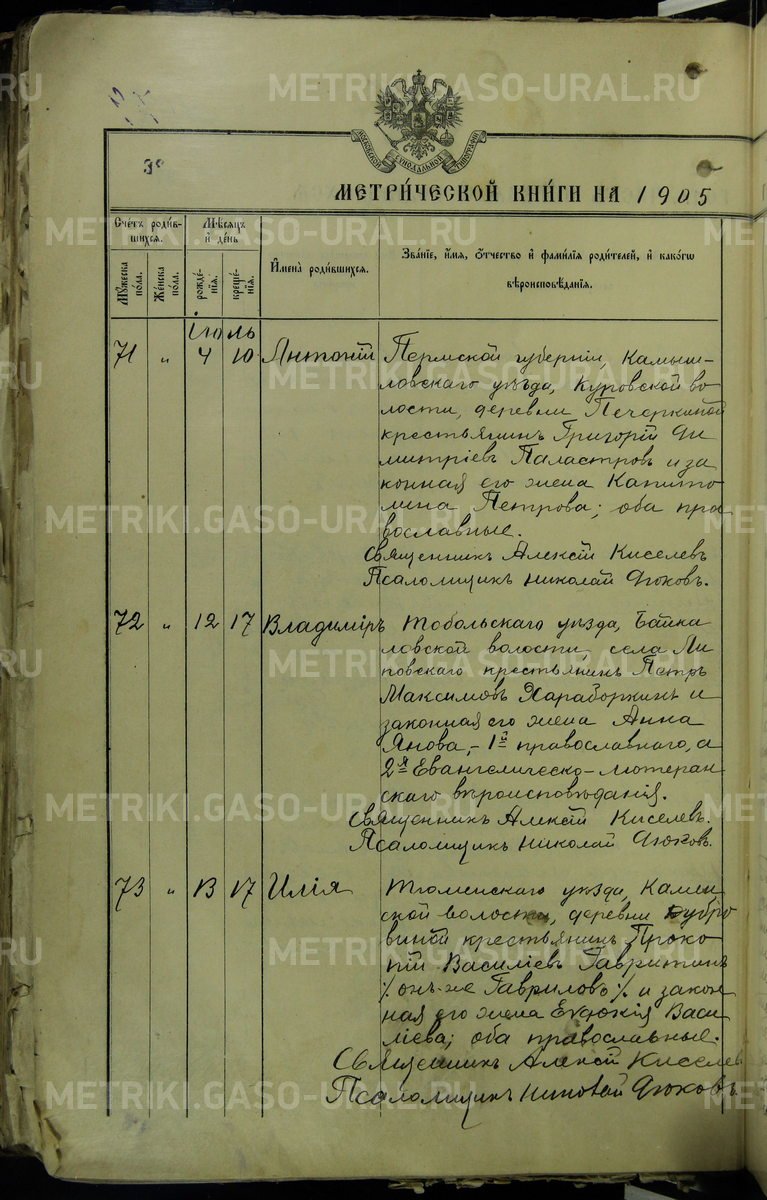 МОСКОВСКОЙ СѴНОДАЛЬНОЙ ТИПОГРАФІИ
МЕТРИ́ЧЕСКОЙ КНИ́ГИ НА 1905
Сче́тъ роди́вшихсѧ.
Мꙋ́жеска по́ла.
Же́нска по́ла.
Мѣ́сѧцъ и҆ де́нь
рожде́нїѧ.
креще́нїѧ.
И҆мена̀ роди́вшихсѧ.
Зва́нїе, и҆́мѧ, ѻ҆́тчество и҆ фами́лїѧ роди́телей, и҆ како́гѡ
вѣроисповѣ́данїѧ.
Июль
71 „ 4 10 Антоній Пермской губерніи, Камыш-
ловскаго уѣзда, Куровской во
лости, деревни Печеркиной
крестьянинъ Григорій Ди
митріевъ Паластровъ и за
конная его жена Капито
лина Петрова; оба пра
вославные.
Священникъ Алексій Киселевъ
Псаломщикъ Николай Дюковъ.
72 „ 12 17 Владиміръ Тобольскаго уѣзда, Байка
ловской волости, села Ли
повскаго крестьянинъ Петръ
Максимовъ Харабориинъ и
законная его жена Анна
Янова, - 1й православнаго, а
2я Евангелическо-лютеран-
скаго вѣроисповѣданія.
Священникъ Алексій Киселевъ.
Псаломщикъ Николай Дюковъ.
73 „ 13 17 Илія Тюменскаго уѣзда, Камен
ской волости, деревни Дубро
виной крестьянинъ Проко
пій Василіевъ Гавритинъ
% онъ-же Гавриловъ % и закон
ная его жена Евдокія Васи
ліева; оба православные.
Священникъ Алексій Киселевъ
Псаломщикъ Николай Дюковъ.
METRIKI.GASO-URAL.RU